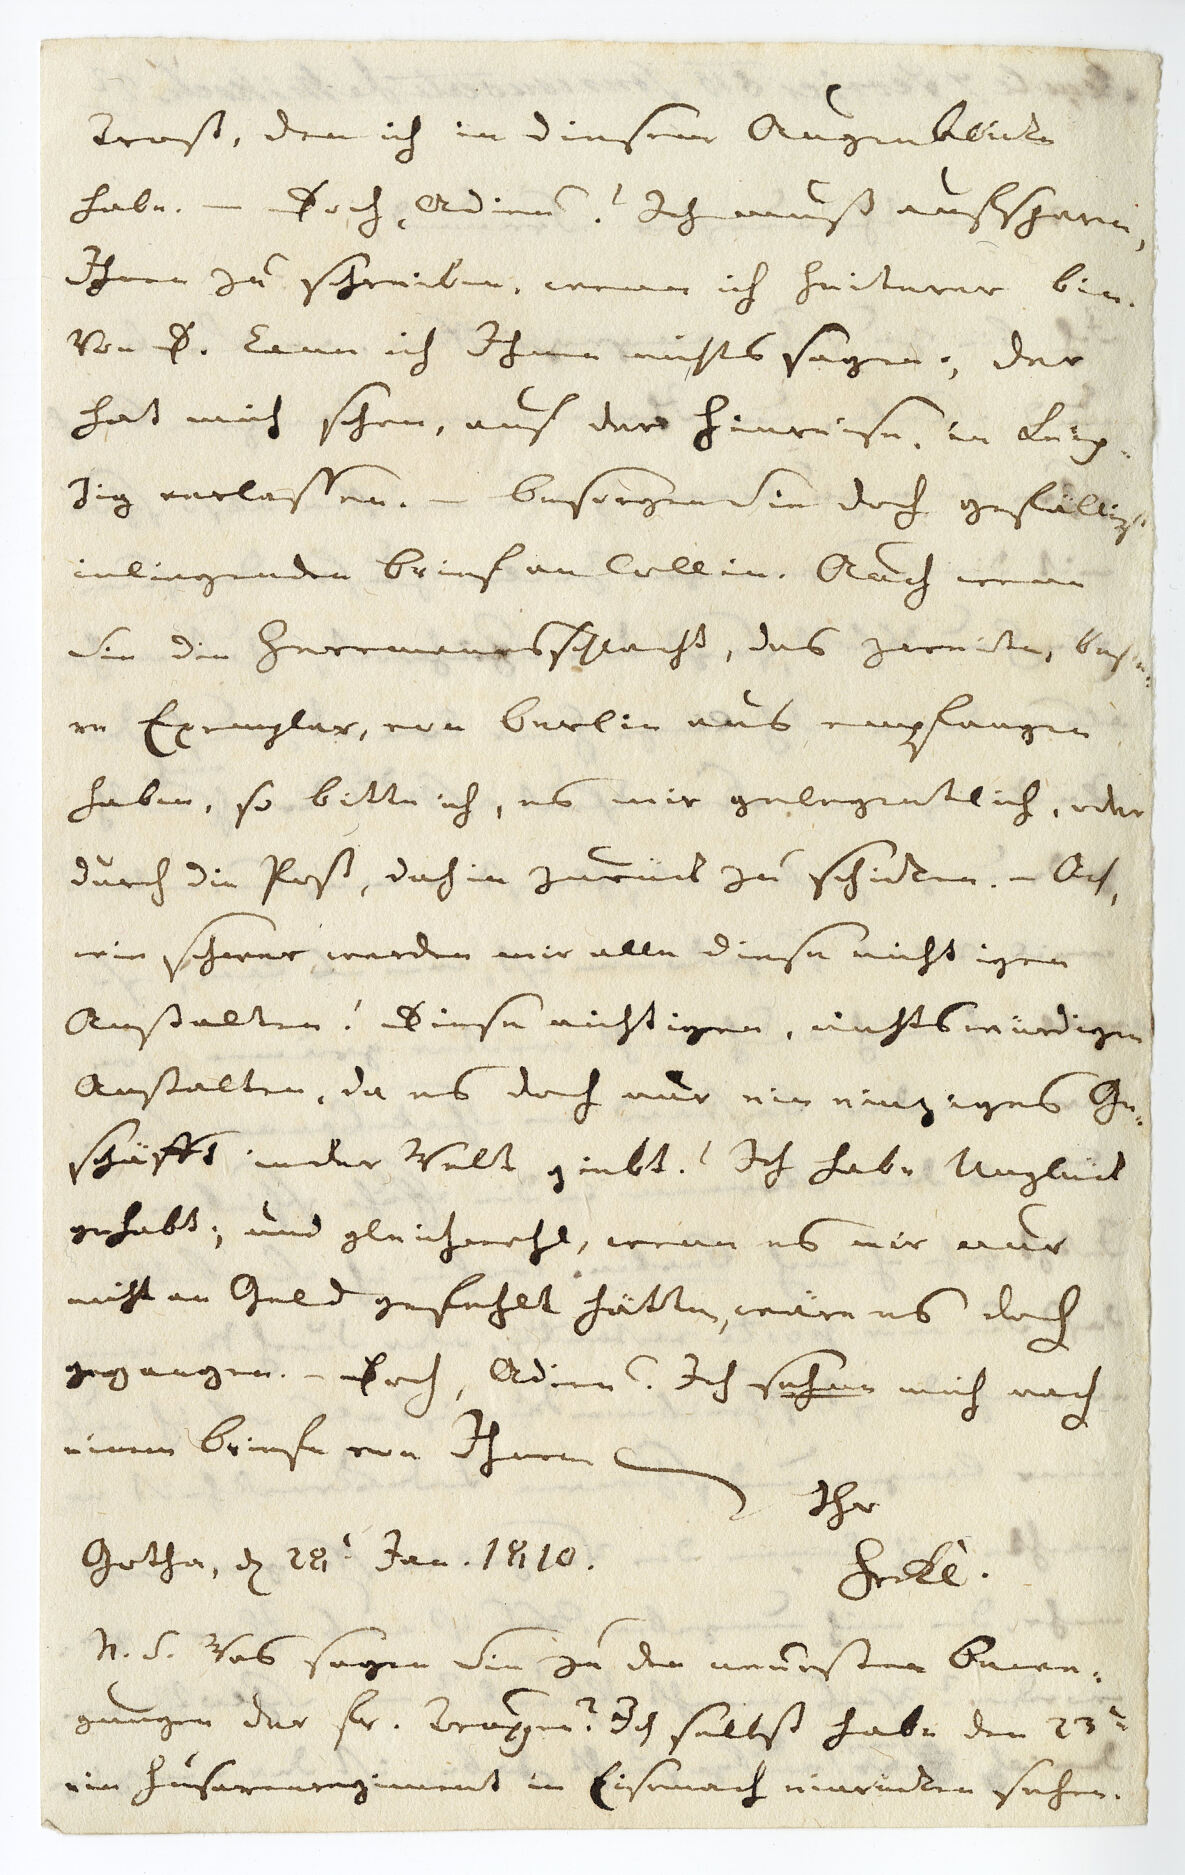 Trost, den ich in diesem Augenblicke
habe. — Doch, Adieu! Ich muß aufhören,
Ihnen zu schreiben, wenn ich heiterer bin.
Von P. kann ich Ihnen nichts sagen; der
hat mich schon, auf der Hinreise, in Leip-
zig verlassen. — Besorgen Sie doch gefälligst
inliegenden Brief an Collin. Auch wenn
Sie die Herrmannsschlacht, das zweite, beße-
re Exemplar, von Berlin aus empfangen
haben, so bitte ich, es mir gelegentlich, oder
durch die Post, dahin zurück zu schicken. — Ach,
wie schwer werden mir alle diese nichtigen
Anstalten! Diese nichtigen, nichtswürdigen
Anstalten, da es doch nur ein einziges Ge-
schäfft in der Welt giebt! Ich habe Unglück
gehabt; und gleichwohl, wenn es mir nur
nicht an Geld gefehlt hätte, wäre es doch
gegangen. — Doch, Adieu. Ich sehne mich nach
einem Briefe von Ihnen
Ihr
Gotha, d 28t Jan. 1810.
N. S. Was sagen Sie zu den neuesten Bewe-
gungen der fr. Truppen? Ich selbst habe den 23t
ein Husarenregiment in Eisenach einrücken sehen.